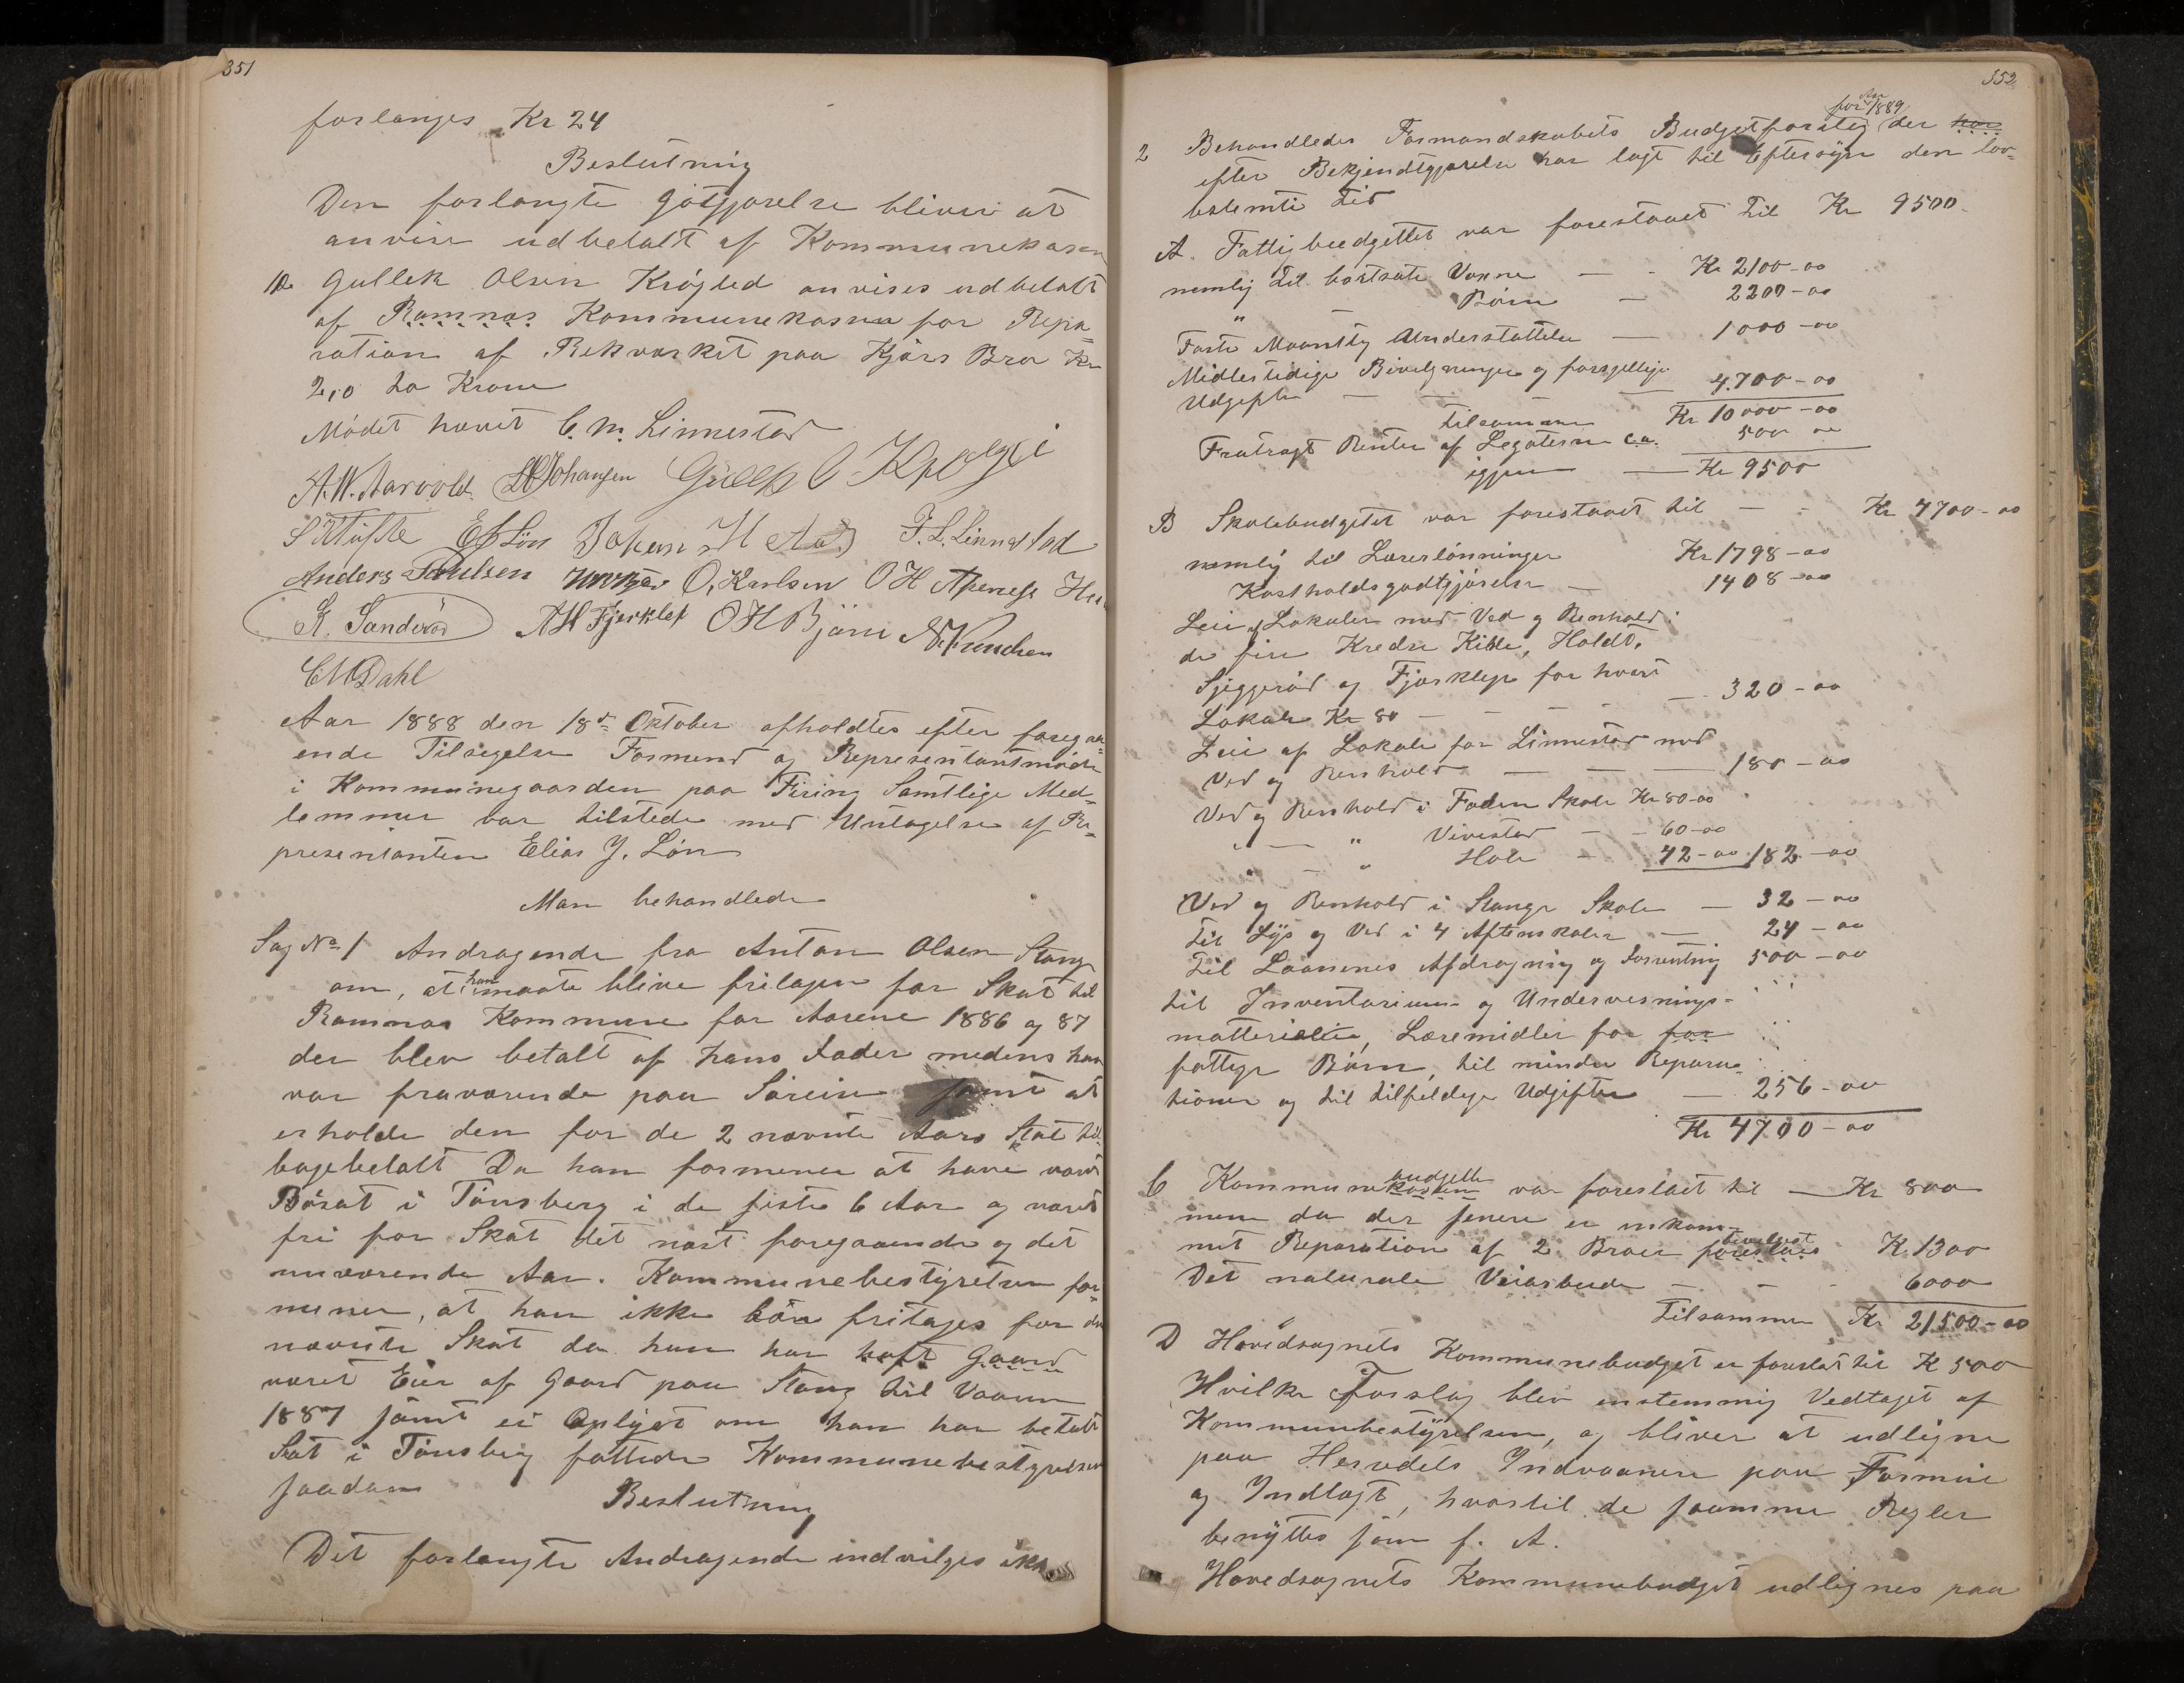 351
forlanges Kr 24
Beslutning
Den forlangte Gotgjørelse bliver at
anvise udbetalt af Kommunekassen
10. Gullek Olsen Krøglid anvises udbetalt
af Ramnæs Kommunekasse for Repa
ration af Rekværket paa Kjærs Bro Kr
2,0 to Krone
Mødet hævet C. M. Linnestad
A.W. Aarvold. Johansen Gullek O Krøgli
S Tufte E J Løn Johan H F. L. Linnestad
Anders Paulsen O, Karlsen O H
K. Sanderød A H Fjerklep O H Bjørn N. Knudsen
C M Dahl
Aar 1888 den 18de Oktober afholdtes efter foregaa
ende Tilsigelse Formend og Representantmøde
i Kommunegaarden paa Firing Samtlige Med-
lemmer var tilstede med Untagelse af Re-
presentanten Elias J. Løn
Man behandlede
Sag No 1 Andragende fra Anton Olsen Stang
om, at han maate blive fritagen for Skat til
Ramnæs Kommune for Aarene 1886 og 87
der blev betalt af hans Fader medens han
var fraværende paa Søreise samt at
erholde den for de 2 nævnte Aars Skat til
bagebetalt Da han formener at have været
Bosat i Tønsberg i de siste 6 Aar og været
fri for Skat det næst foregaaende og det
nuværende Aar. Kommunebestyrelsen for-
mener, at han ikke bør fritages for den
nævnte Skat da han har haft Gaard
været Eier af Gaard paa Stang til Vaaren
1887 samt ei Oplyst om han har betalt
Skat i Tønsberg fattede Kommunebestyrelsen
saadan Beslutning
Det forlangte Andragende indvilges ikke
352
for Aar 1889
2 Behandledes Formandskabets Budgetforslag der har
efter Bekjendtgjørelse har lagt til Eftersyn den lov-
bestemte Tid
A. Fattigbudgettet var forestaaet til Kr 9500
nemlig til bortsate Voxne — - Kr 2100-00
" Børn — 2200-00
Faste Maantlig Understøttelse — 1000-00
Midlertidige Bevilgninger og forsgjellige
Udgifter — — — 4.700-00
tilsammen Kr 10000-00
Fratragt Renter af Legaterne ca. 500 00
igjen — Kr 9500
B Skolebudgetet var forestaaet til — - Kr 4700-00
nemlig til Læreslønninger Kr 1798-00
Kostholdsgodtgjørelse — 1408-00
Leie af Lokaler med Ved og Renhold i
de fire Kredse Kible, Holdt,
Sjeggerød og Fjærklep for hvert
Lokale Kr 80 — - - - — 320-00
Leie af Lokale for Linnestad med
Ved og Renhold — — — 180-00
Ved og Renhold i Foden Skole Kr 80-00
" — " Vivestad — - 60-00
" — " Hole — 42-00 182-00
Ved og Renhold i Stange Skole — 32-00
Til Lys og Ved i 4 Aftenskoler — 24-00
Til Laanenes Afdragning og Forrentning 500-00
til Inventarium- og Undervisnings-
matterialie, Læremidler for for
fattige Børn, til mindre Repara-
tioner og til tilfeldige Udgifter — 256-00
Kr 4700-00
budgette
C Kommunekassen var foreslaaet til — Kr 800
men da der senere er inkom-
met Reparation af 2 Broer foreslaaes K. 1300
Det naturale Veiarbeide — - - 6000
Tilsammen Kr 21500-00
D Hovedsognets Kommunebudget er foreslat til K 500
Hvilke Forslag blev enstemmig Vedtaget af
Kommunbestyrelsen, og bliver at udligne
paa Heredets Indvaanere paa Formue
og Indtægt, hvortil de saamme Regler
benyttes som f. A.
Hovedsognets Kommunebudget udlignes paa